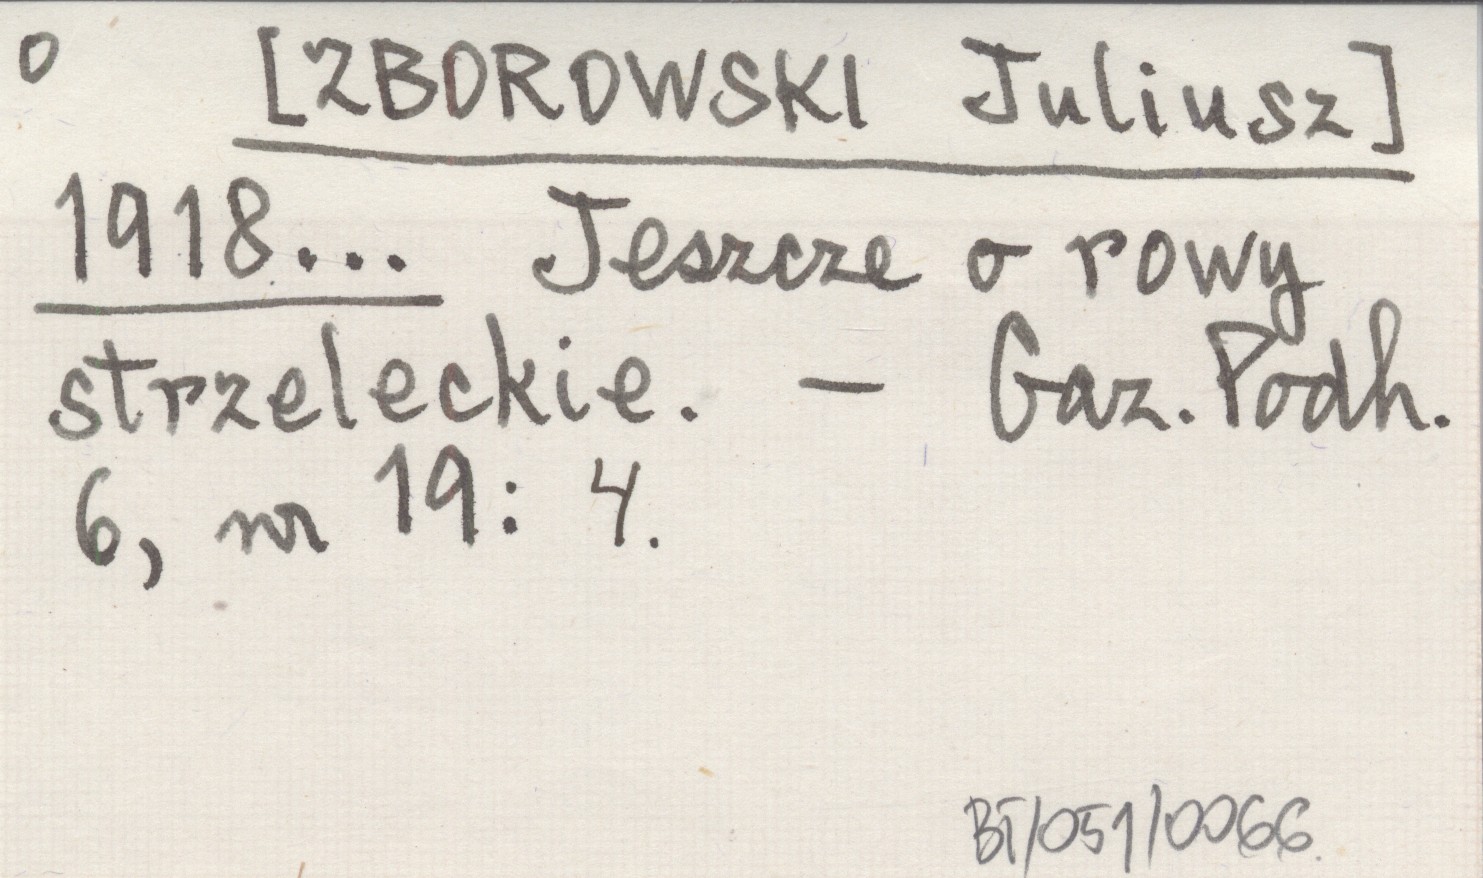 o [ZBOROWSKI Juliusz]
1918... Jeszcze o rowy
strzeleckie. — Gaz. Podh.
6, nr 19: 4.
BT/051/0066.